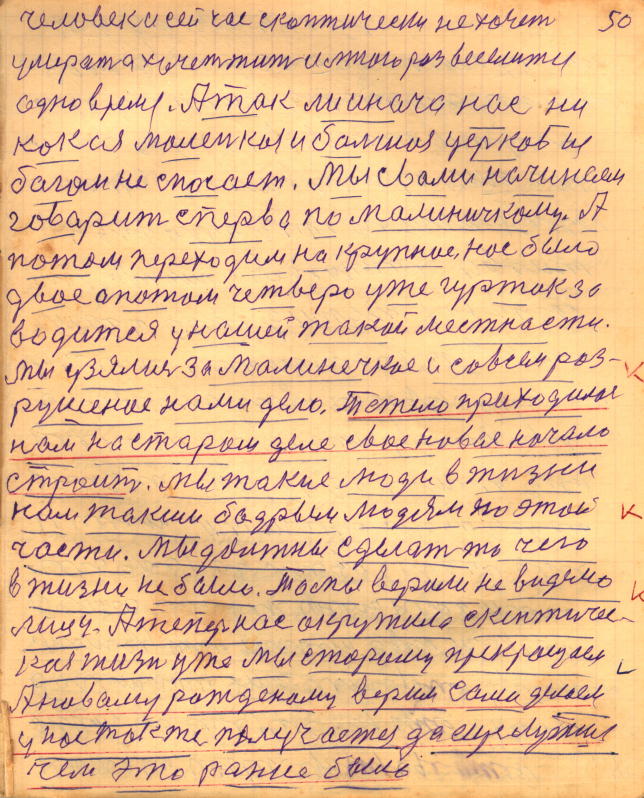 человека сейчас скоптически не хочет 50
умерата хочет жит и много раз веселитца
одно время. А так ли инача нас ни
кокая маленкоя и болшоя церков из
багом не спосает. Мы свами начинаем
говарит сперва по малиничкому. А
потом переходим на крупное, нас было
двое опотом четверо уже гурток за
водится у нашей такой местнасти.
мы узялис за малинечкое и совсем роз-
рушеное нами дело. Тяжело приходилос
нам настаром деле свое новое начало
строит. мы такие люди в жизни
нам таким бадрым людям по этой
части. Мы должны сделат то чего
в жизни не было. То мы верили не видемо
лицу. А тепернас окружило скептичес-
кая жизн уже мы старому прекрощаем
А новаму рожденому верим сами делаем
у нос так же получается да еще лутши
чем это ранше было